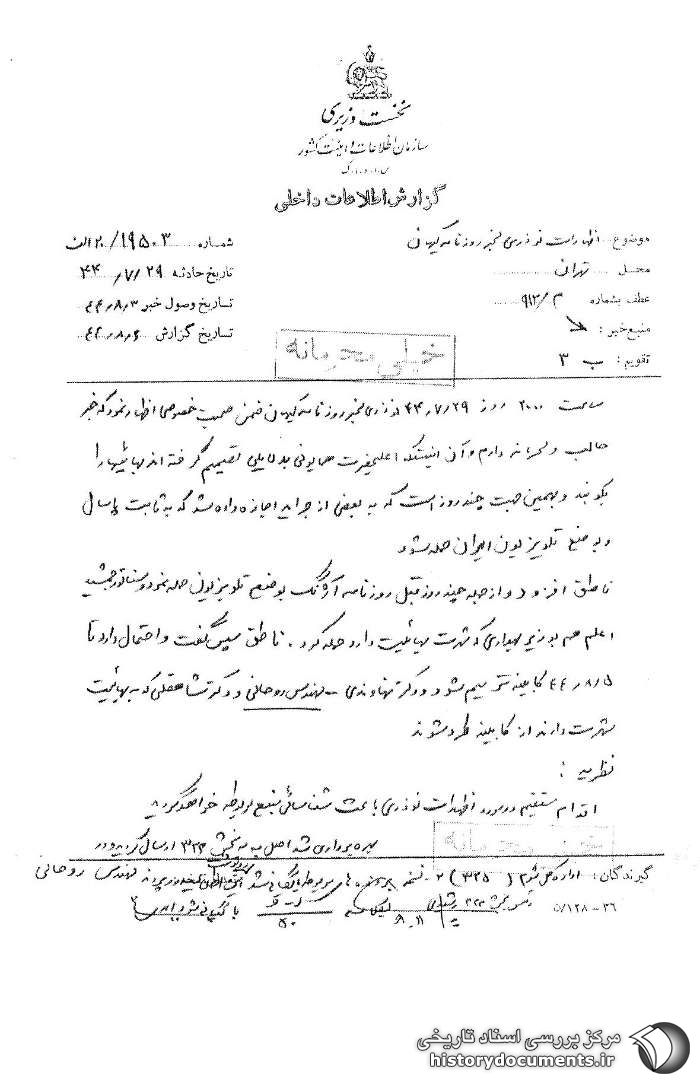 نخست وزیری
سازمان اطلاعات و امنیت کشور
گزارش اطلاعات داخلی
موضوع: اظهارات نوذری مخبر روزنامه کیهان
شماره ۱۹۵۰۳/۲۰ الف
محل تهران
تاریخ حادثه ۴۴/۷/۲۹
عطف بشماره ۹۱۲/۳
تاریخ وصول خبر ۴۴/۸/۳
منبع خبر:
تاریخ گزارش ۴۴/۸/۶
تقویم: ب ۳
خیلی محرمانه
ساعت ۲۰۰۰ روز ۴۴/۷/۲۹ نوذری مخبر روزنامه کیهان ضمن صحبت خصوصی اظهار نمود که خبر
جالب و محرمانه دارم و آن اینستکه اعلیحضرت همایونی بدلایلی تصمیم گرفته اند بهائیها را
بکوبند و بهمین جهت چند روز است که به بعضی از جراید اجازه داده شد که به ثابت پاسال
و به وضع تلویزیون ایران حمله شود
ناطق افزود و از جمله چند روز قبل روزنامه آژنگ بوضع تلویزیون حمله نمود و سناتور جمشید
اعلم هم به وزیر بهداری که شهرت بهائیت دارد حمله کرد. ناطق سپس گفت و احتمال دارد تا
۴۴/۸/۵ کابینه ترمیم شود و دکتر نهاوندی - مهندس روحانی و دکتر شاهقلی که به بهائیت
شهرت دارند از کابینه طرد شوند
نظریه:
اقدام مستقیم در مورد اظهارات نوذری باعث شناسائی منبع مربوطه خواهد گردید
بهره برداری شد اصل به بخش ۳۲۳ ارسال گردید
خیلی محرمانه
گیرندگان: اداره کل سوم (۳۲۵) ۲ نسخه
پرونده مهندس روحانی
۵/۱۲۸-۳۶
بایگانی شود
مرکز بررسی اسناد تاریخی
historydocuments.ir